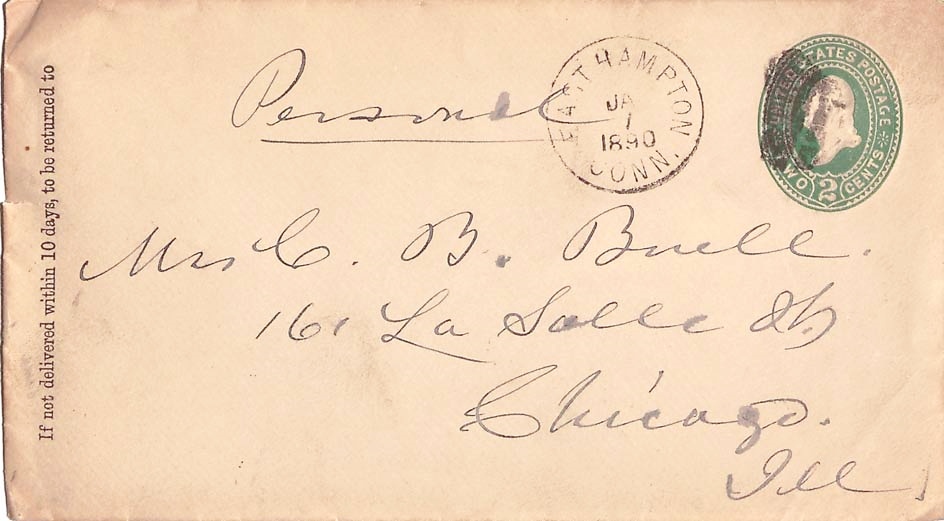 If not delivered within 10 days, to be returned to
Personal
EAST HAMPTON
JA
1
1890
CONN.
UNITED STATES POSTAGE
TWO 2 CENTS
Mrs C. B. Buell.
161 La Salle St
Chicago.
Ill